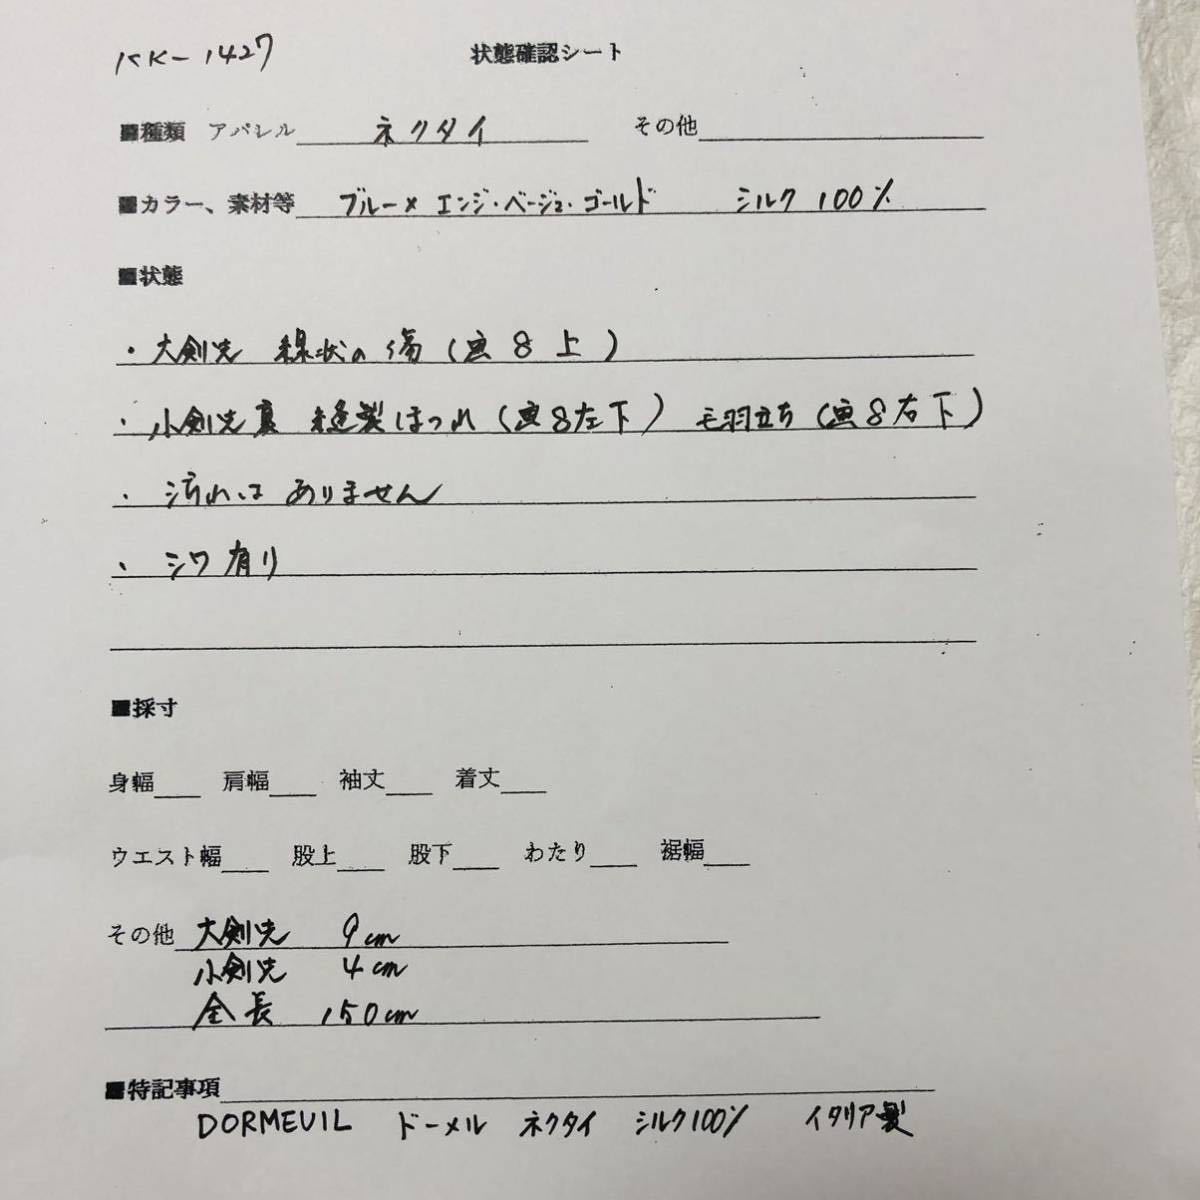 KK-1427 状態確認シート
■種類 アパレル ネクタイ その他
■カラー、素材等 ブルー× エンジ・ベージュ・ゴールド シルク 100%
■状態
・大剣先 線状の傷(画8上)
・小剣先裏 縫製ほつれ(画8左下) 毛羽立ち(画8右下)
・汚れはありません
・シワ有り
■採寸
身幅 肩幅 袖丈 着丈
ウエスト幅 股上 股下 わたり 裾幅
その他 大剣先 9cm
小剣先 4cm
全長 150cm
■特記事項
DORMEUIL ドーメル ネクタイ シルク100% イタリア製